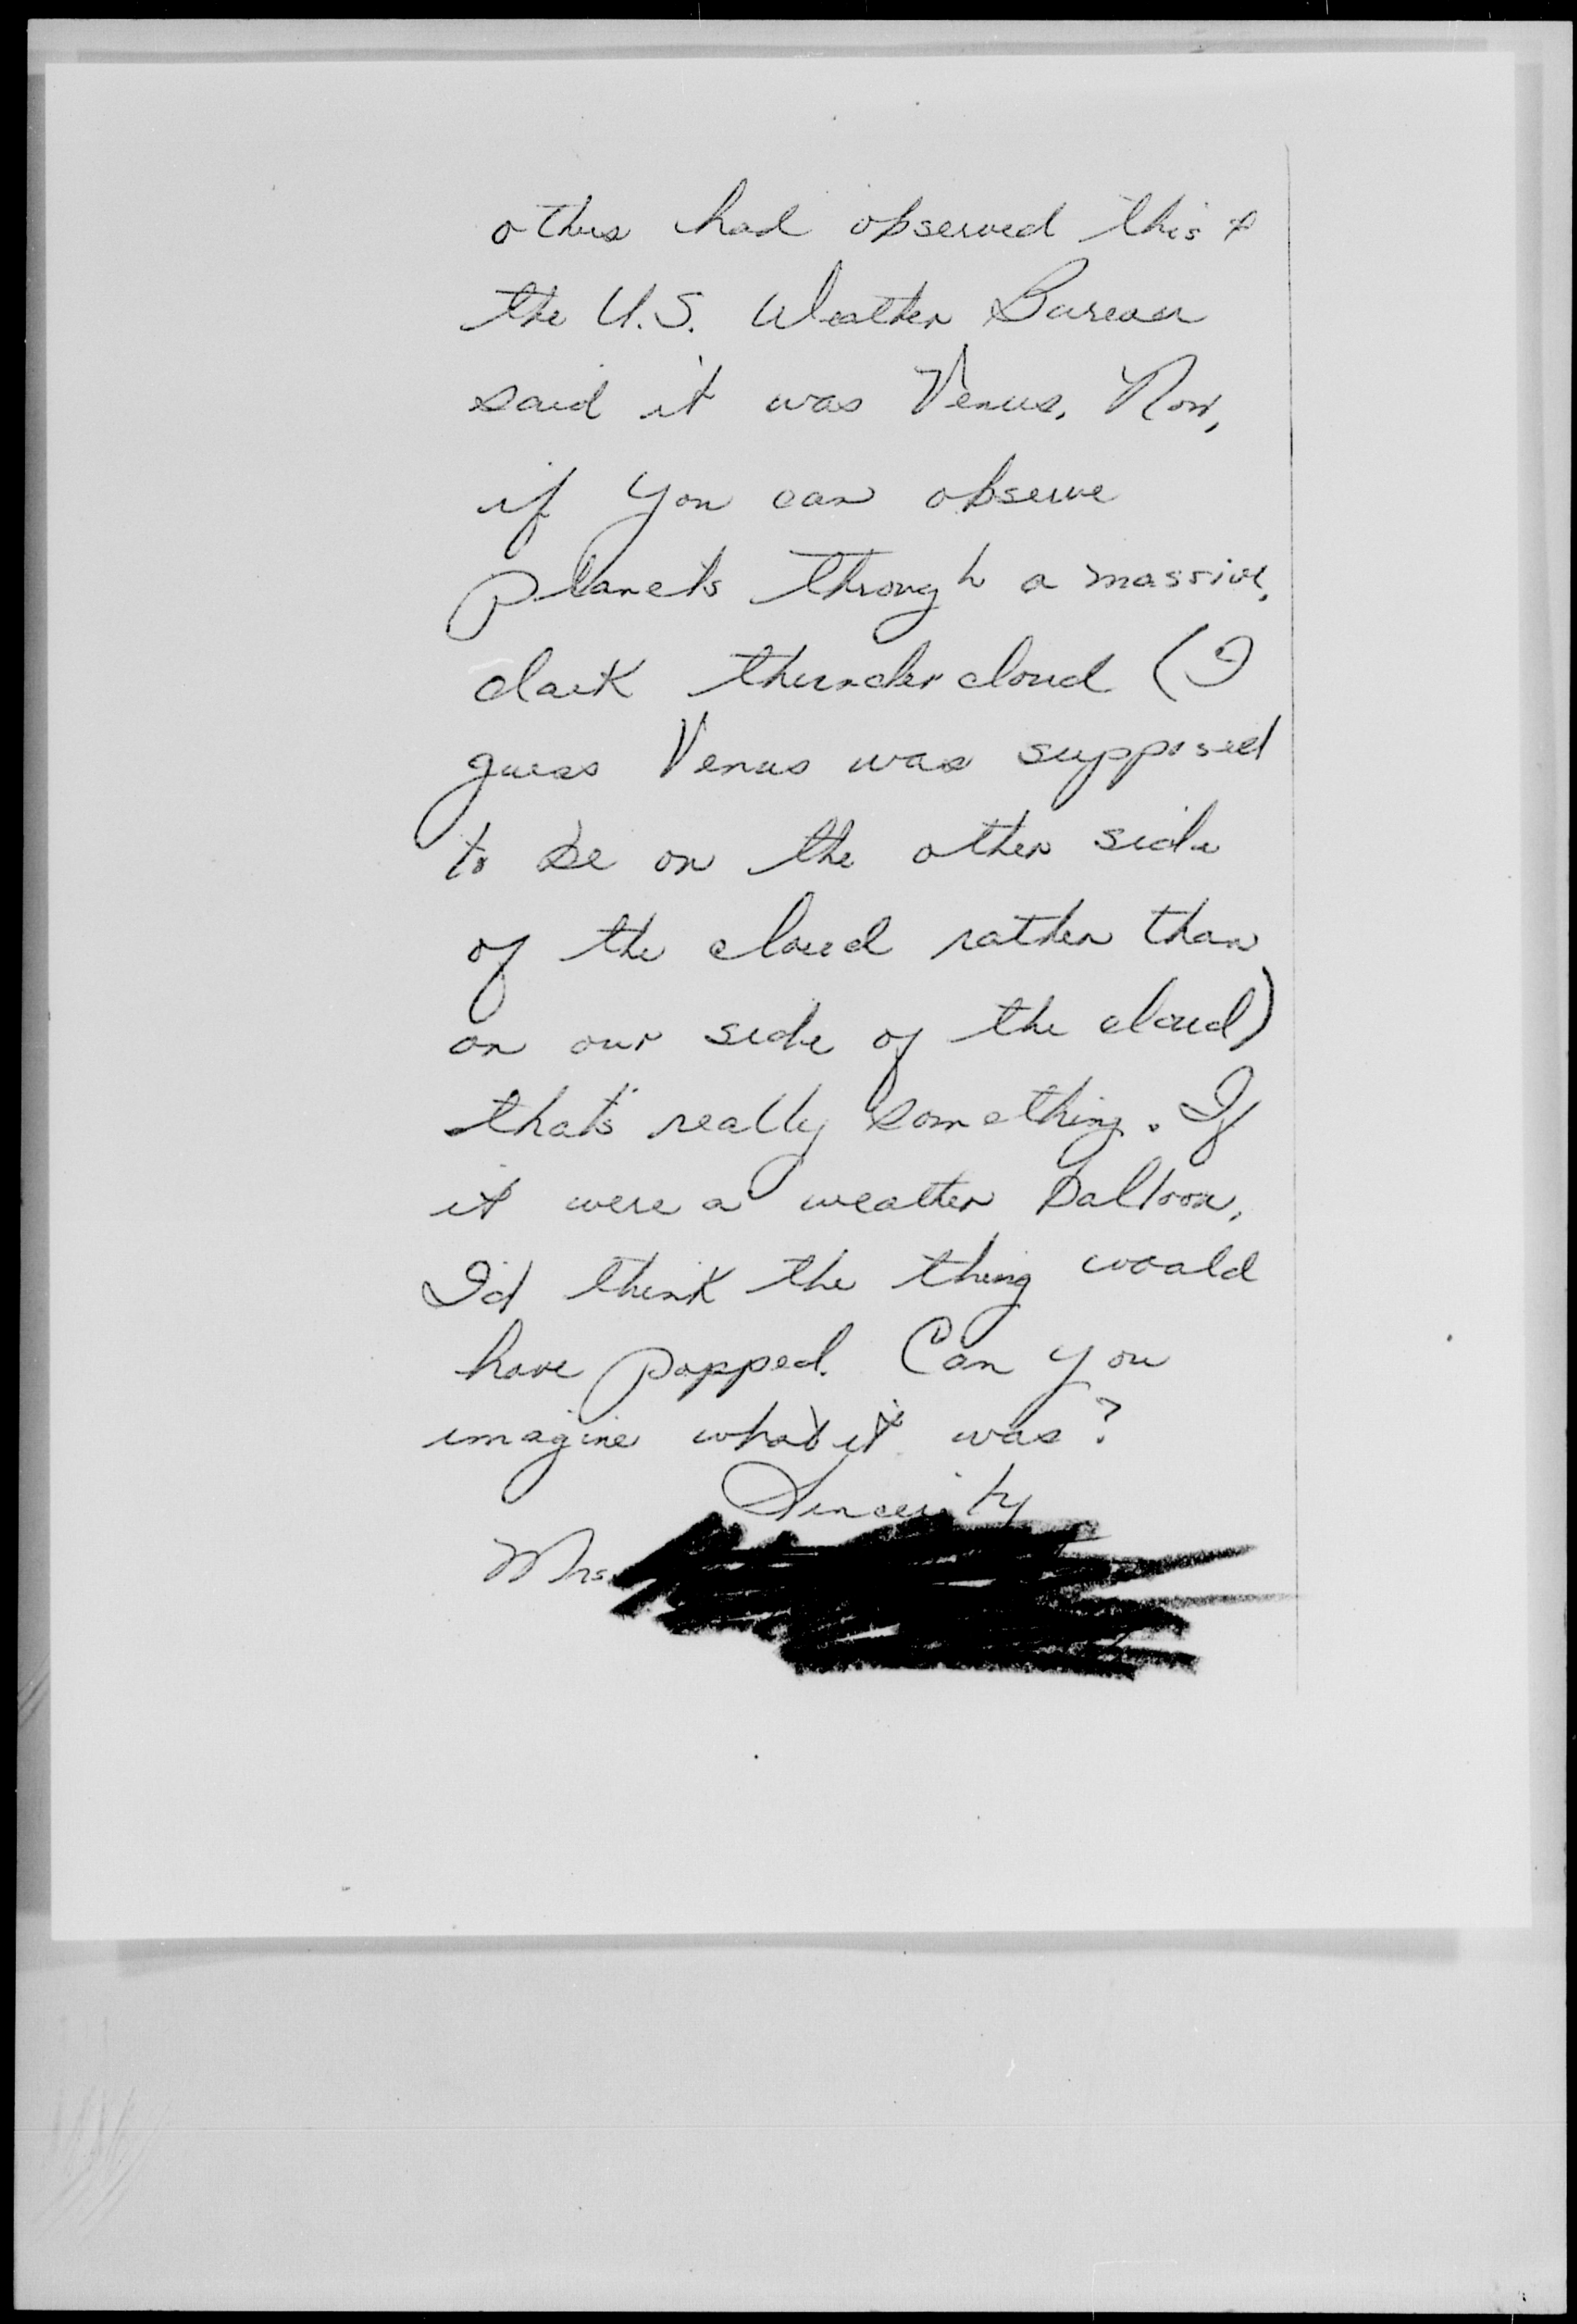 others had observed this &
the U.S. Weather Bureau
said it was Venus. Now,
if you can observe
planets through a massive,
dark thunder cloud (I
guess Venus was supposed
to be on the other side
of the cloud rather than
on our side of the cloud)
that's really something. If
it were a weather balloon,
I'd think the thing would
have popped. Can you
imagine what it was?
Sincerely
Mrs.